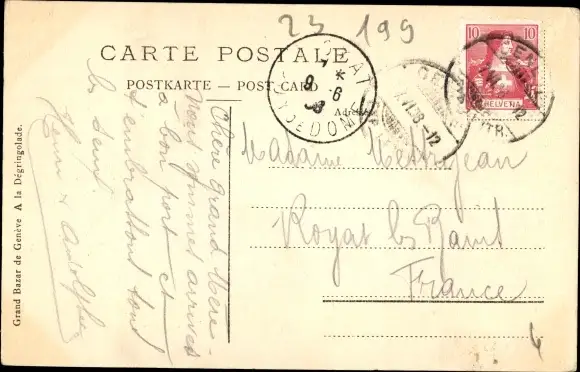 23 199
CARTE POSTALE
POSTKARTE — POST CARD
Adresse
10 10
HELVETIA
8 * 6
08
DE DOM
VI.08-12
Madame
Royat les Bains
France
Chère grand Mère
Nous sommes arrivés
a bon port et
t embrassons tous
les deux.
Henri & Adolphe
Grand Bazar de Genève A la Dégringolade.